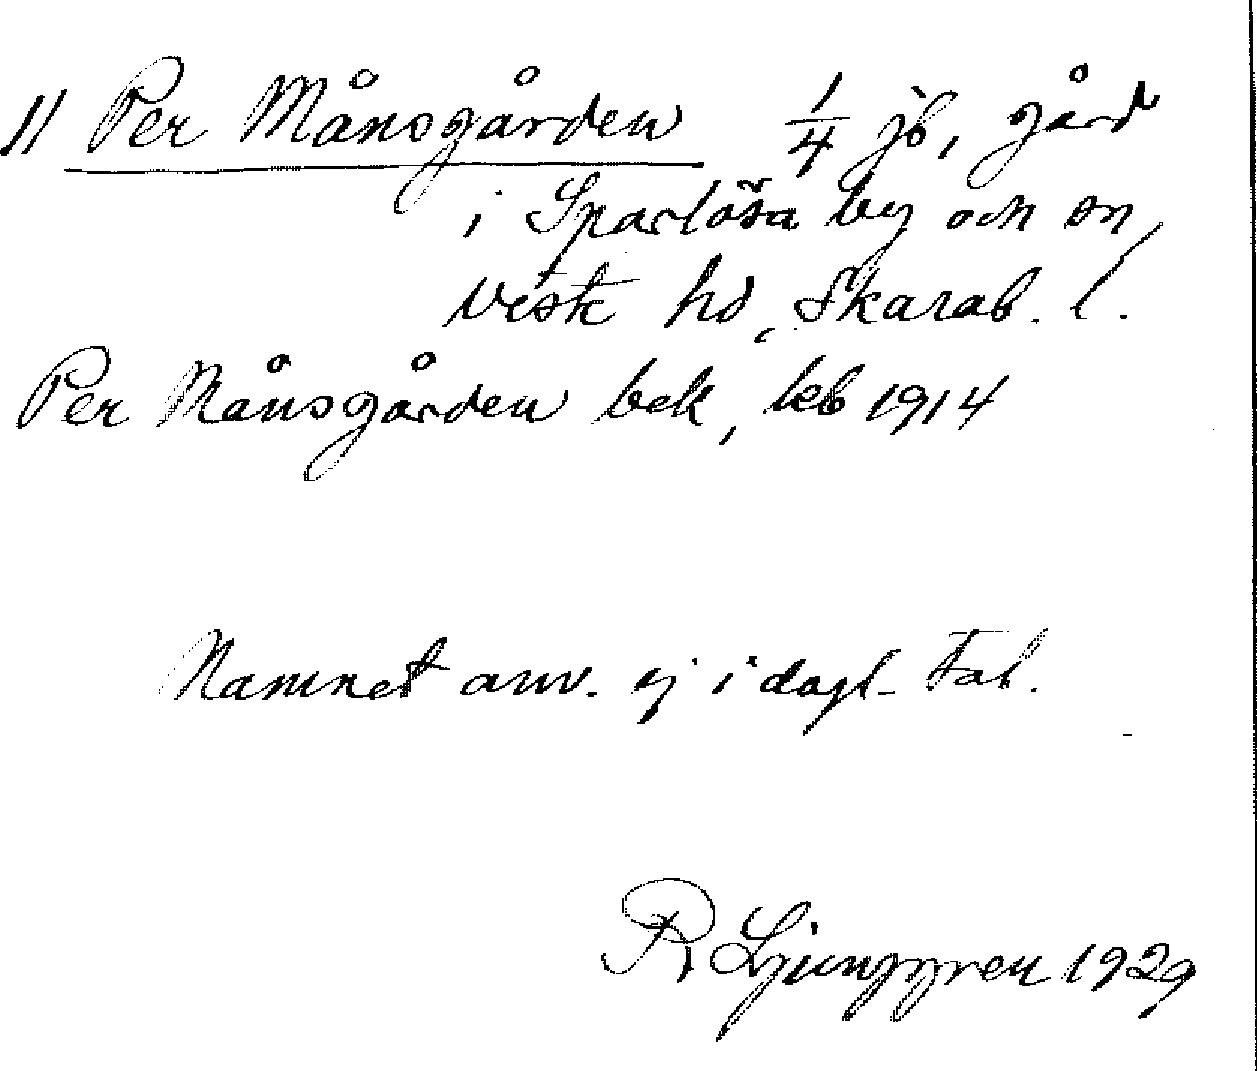 11 Per Månsgården 1/4 jb, gård
i Sparlösa by och sn,
Viste hd, Skarab. l.
Per Månsgården bek, leb 1914
Namnet anv. ej i dagl. tal.
R Ljunggren 1929